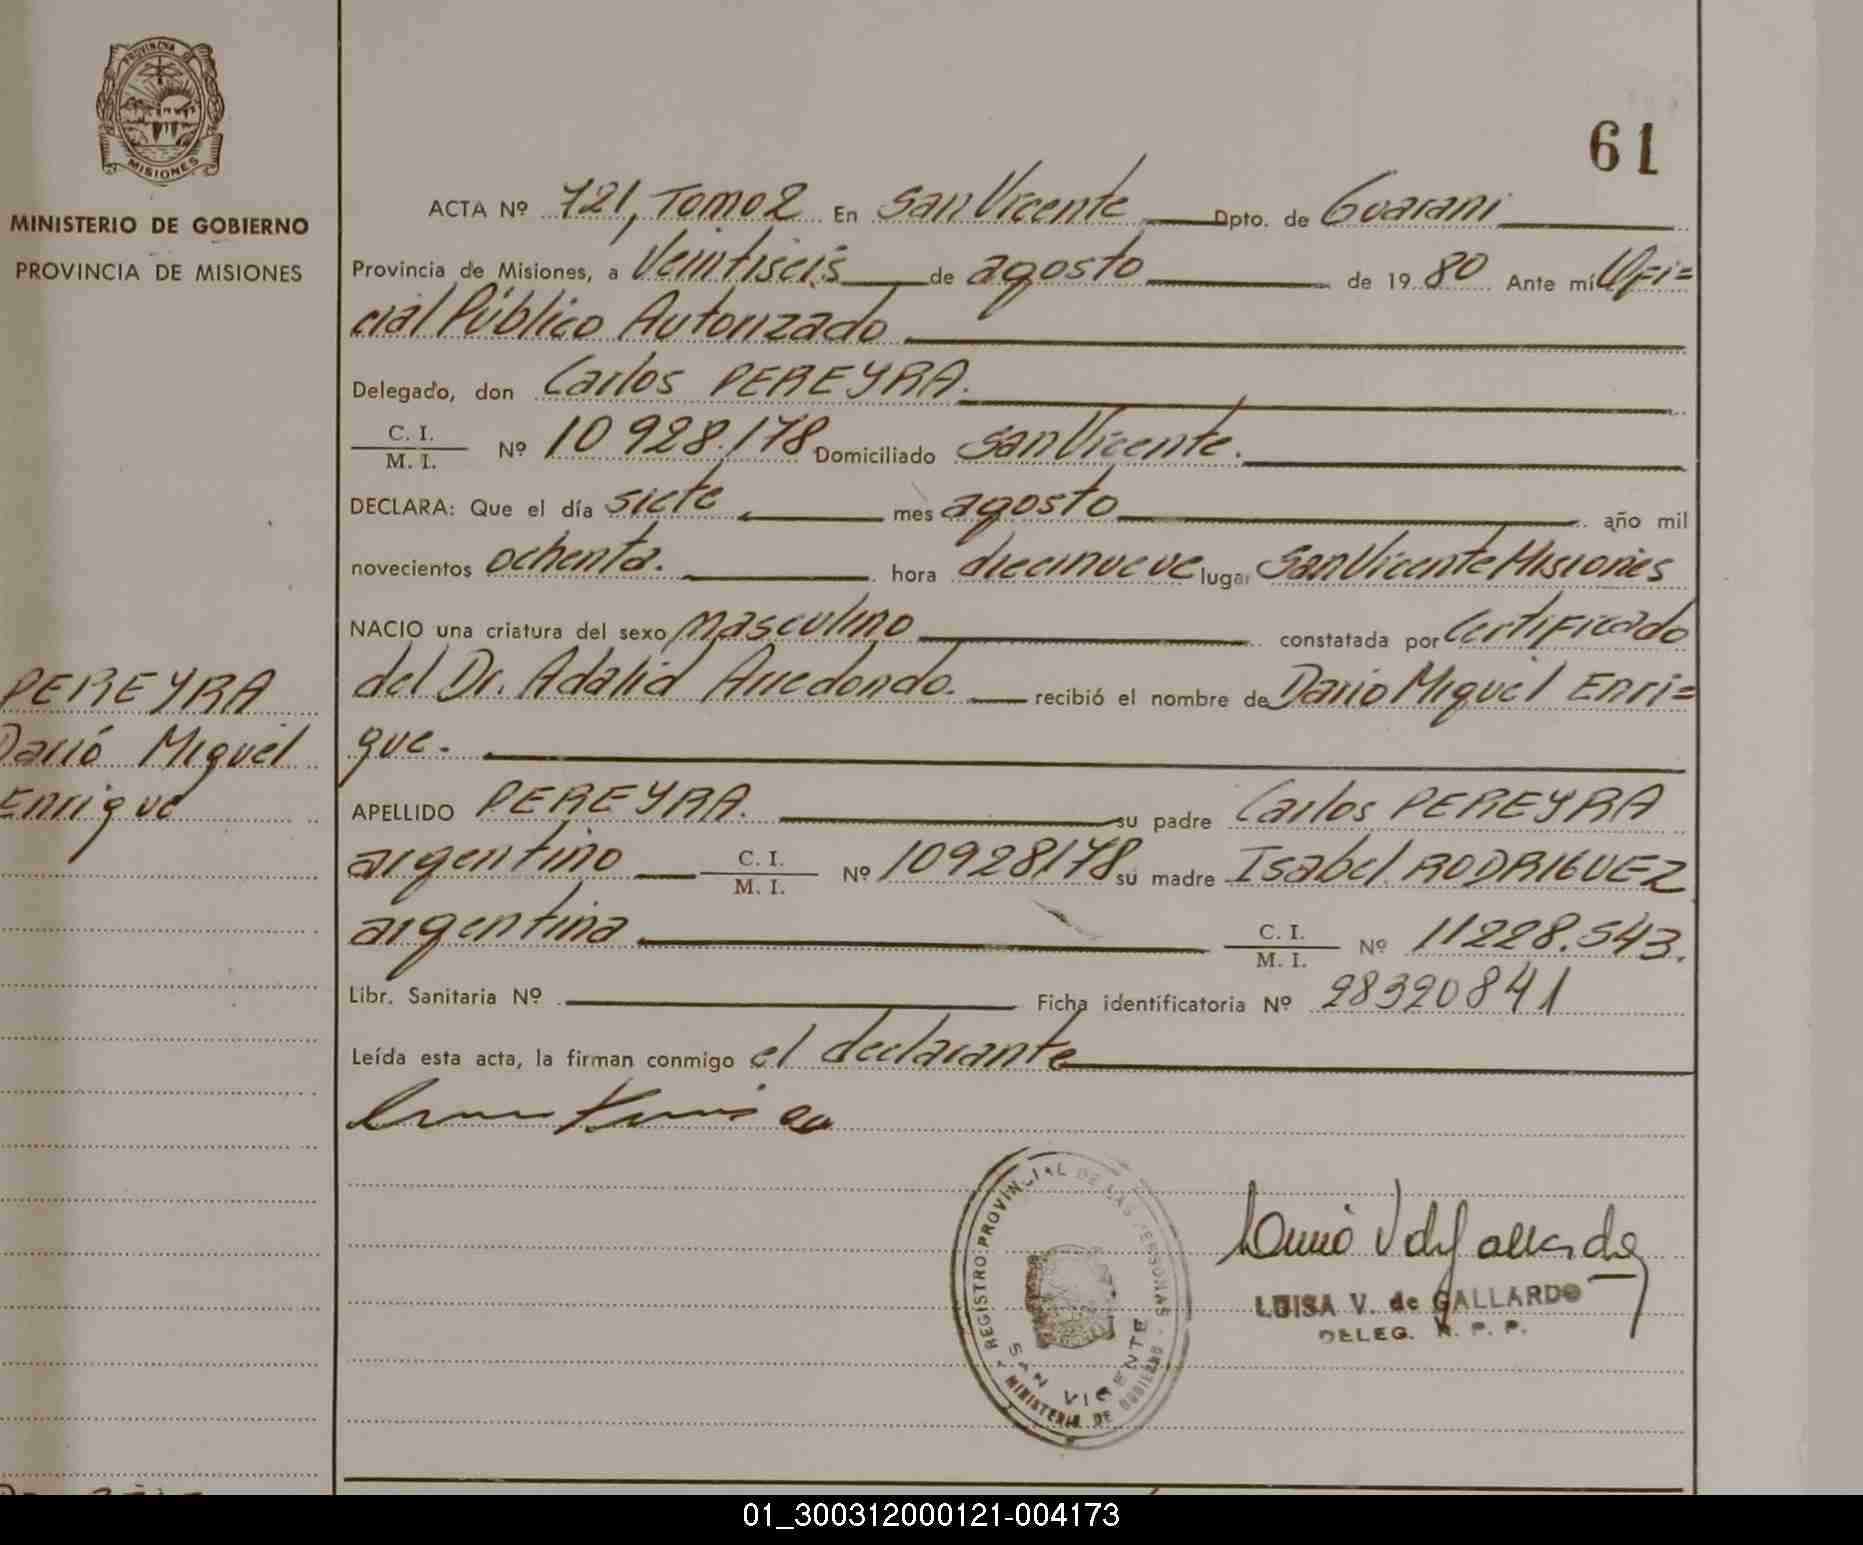 PROVINCIA DE
MISIONES
MINISTERIO DE GOBIERNO
PROVINCIA DE MISIONES
61
ACTA Nº 721, Tomo 2 En San Vicente Dpto. de Guarani
Provincia de Misiones, a Veintiseis de agosto de 19 80 Ante mí Ofi=
cial Público Autorizado
Delegado, don Carlos PEREYRA.
C. I.
M. I. Nº 10 928.178 Domiciliado San Vicente.
DECLARA: Que el día siete mes agosto año mil
novecientos ochenta. hora diecinueve lugar San Vicente Misiones
NACIO una criatura del sexo masculino constatada por Certificado
del Dr. Adalid Arredondo. recibió el nombre de Dario Miguel Enri=
que.
PEREYRA
Darió Miguel
Enrique
APELLIDO PEREYRA. su padre Carlos PEREYRA
argentino C. I.
M. I. Nº 10928178 su madre Isabel RODRIGUEZ
argentina C. I.
M. I. Nº 11228.543.
Libr. Sanitaria Nº Ficha identificatoria Nº 28320841
Leída esta acta, la firman conmigo el declarante
REGISTRO PROVINCIAL DE LAS PERSONAS
SAN VICENTE
MINISTERIO DE GOBIERNO
LUISA V. de GALLARDO
DELEG. R. P. P.
01_300312000121-004173